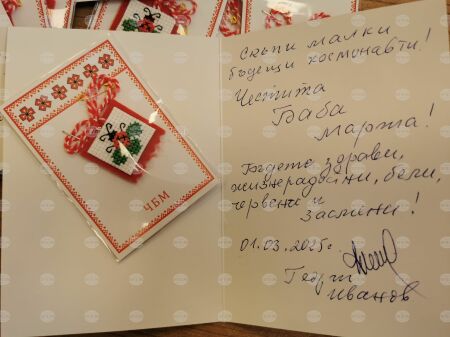 ЧБМ
Скъпи малки
бъдещи космонавти!
Честита
Баба
Марта!
Бъдете здрави,
жизнерадостни, бели,
червени и
засмени!
01.03.2025г.
Георги
Иванов